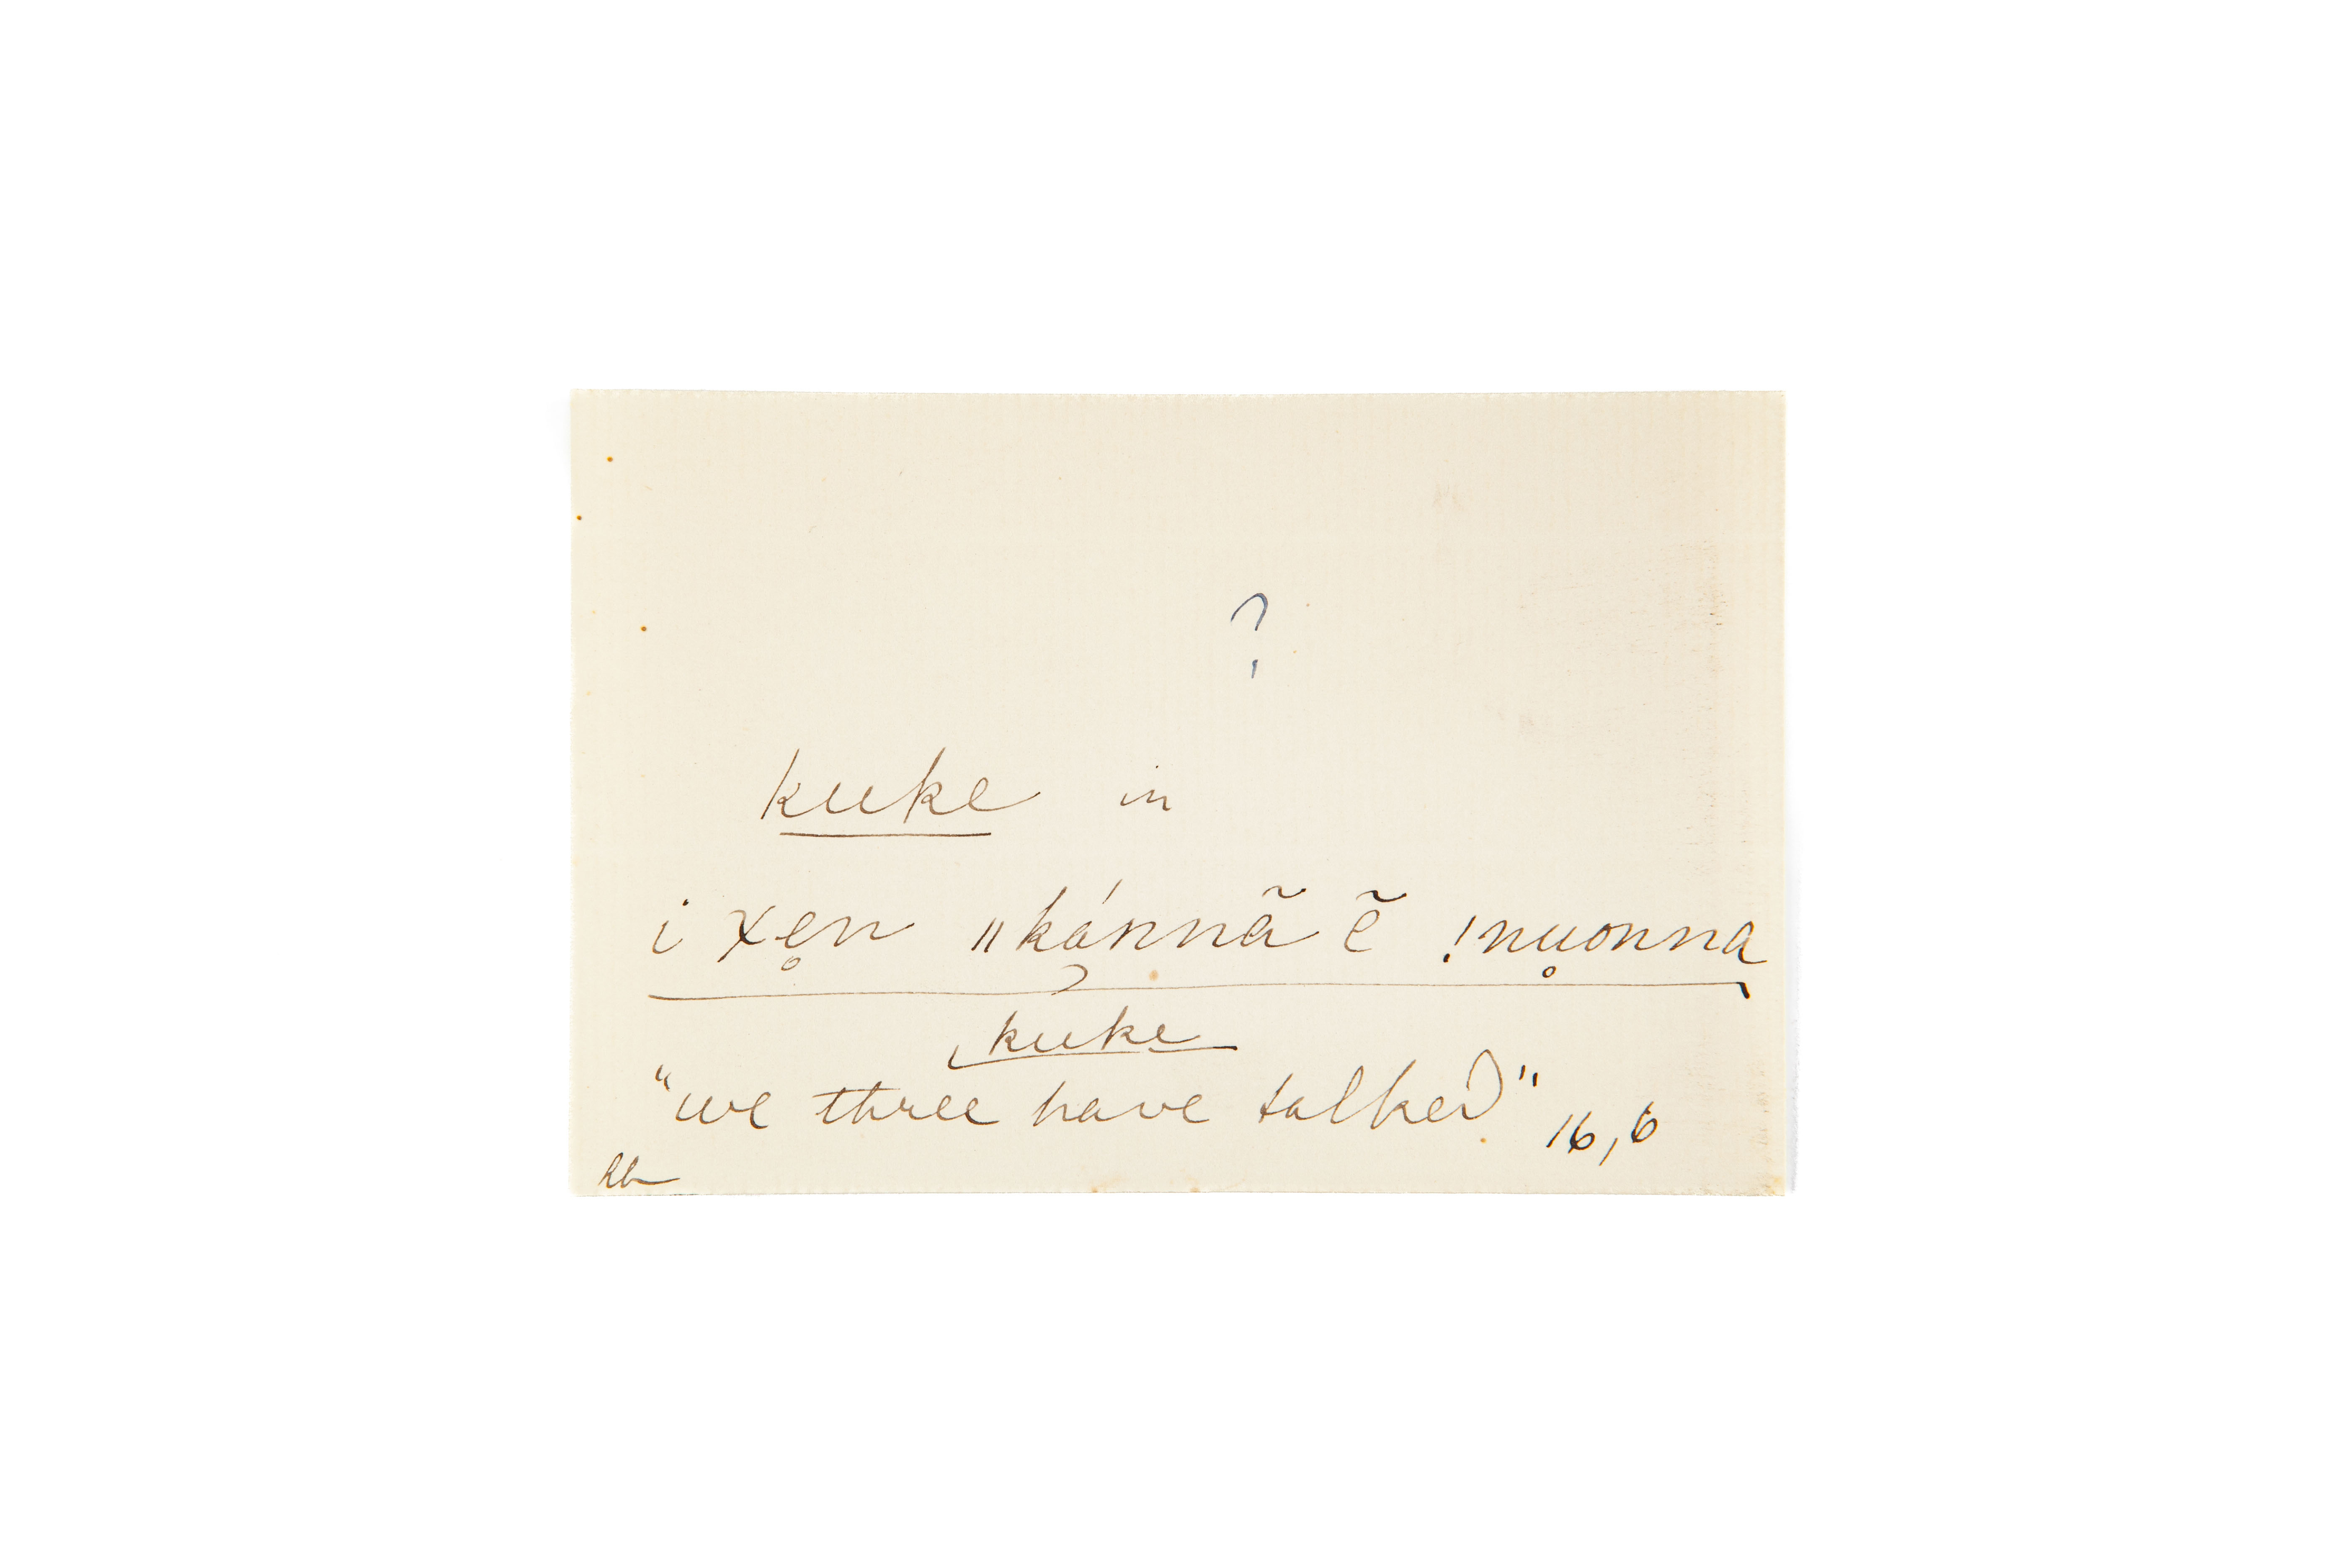 ?
kuke in
i χe̥n ǁkánnã ẽ !nu̥onna
kuke
"we three have talked" 16,6